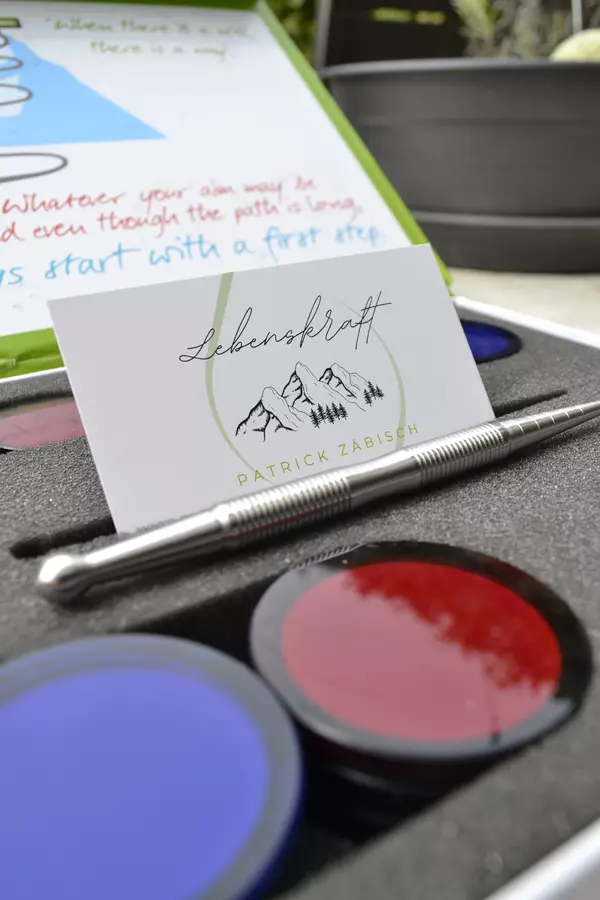 "When there is a will
there is a way
Whatever your aim may be
d even though the path is long,
ys start with a first step
Lebenskraft
PATRICK ZÄBISCH